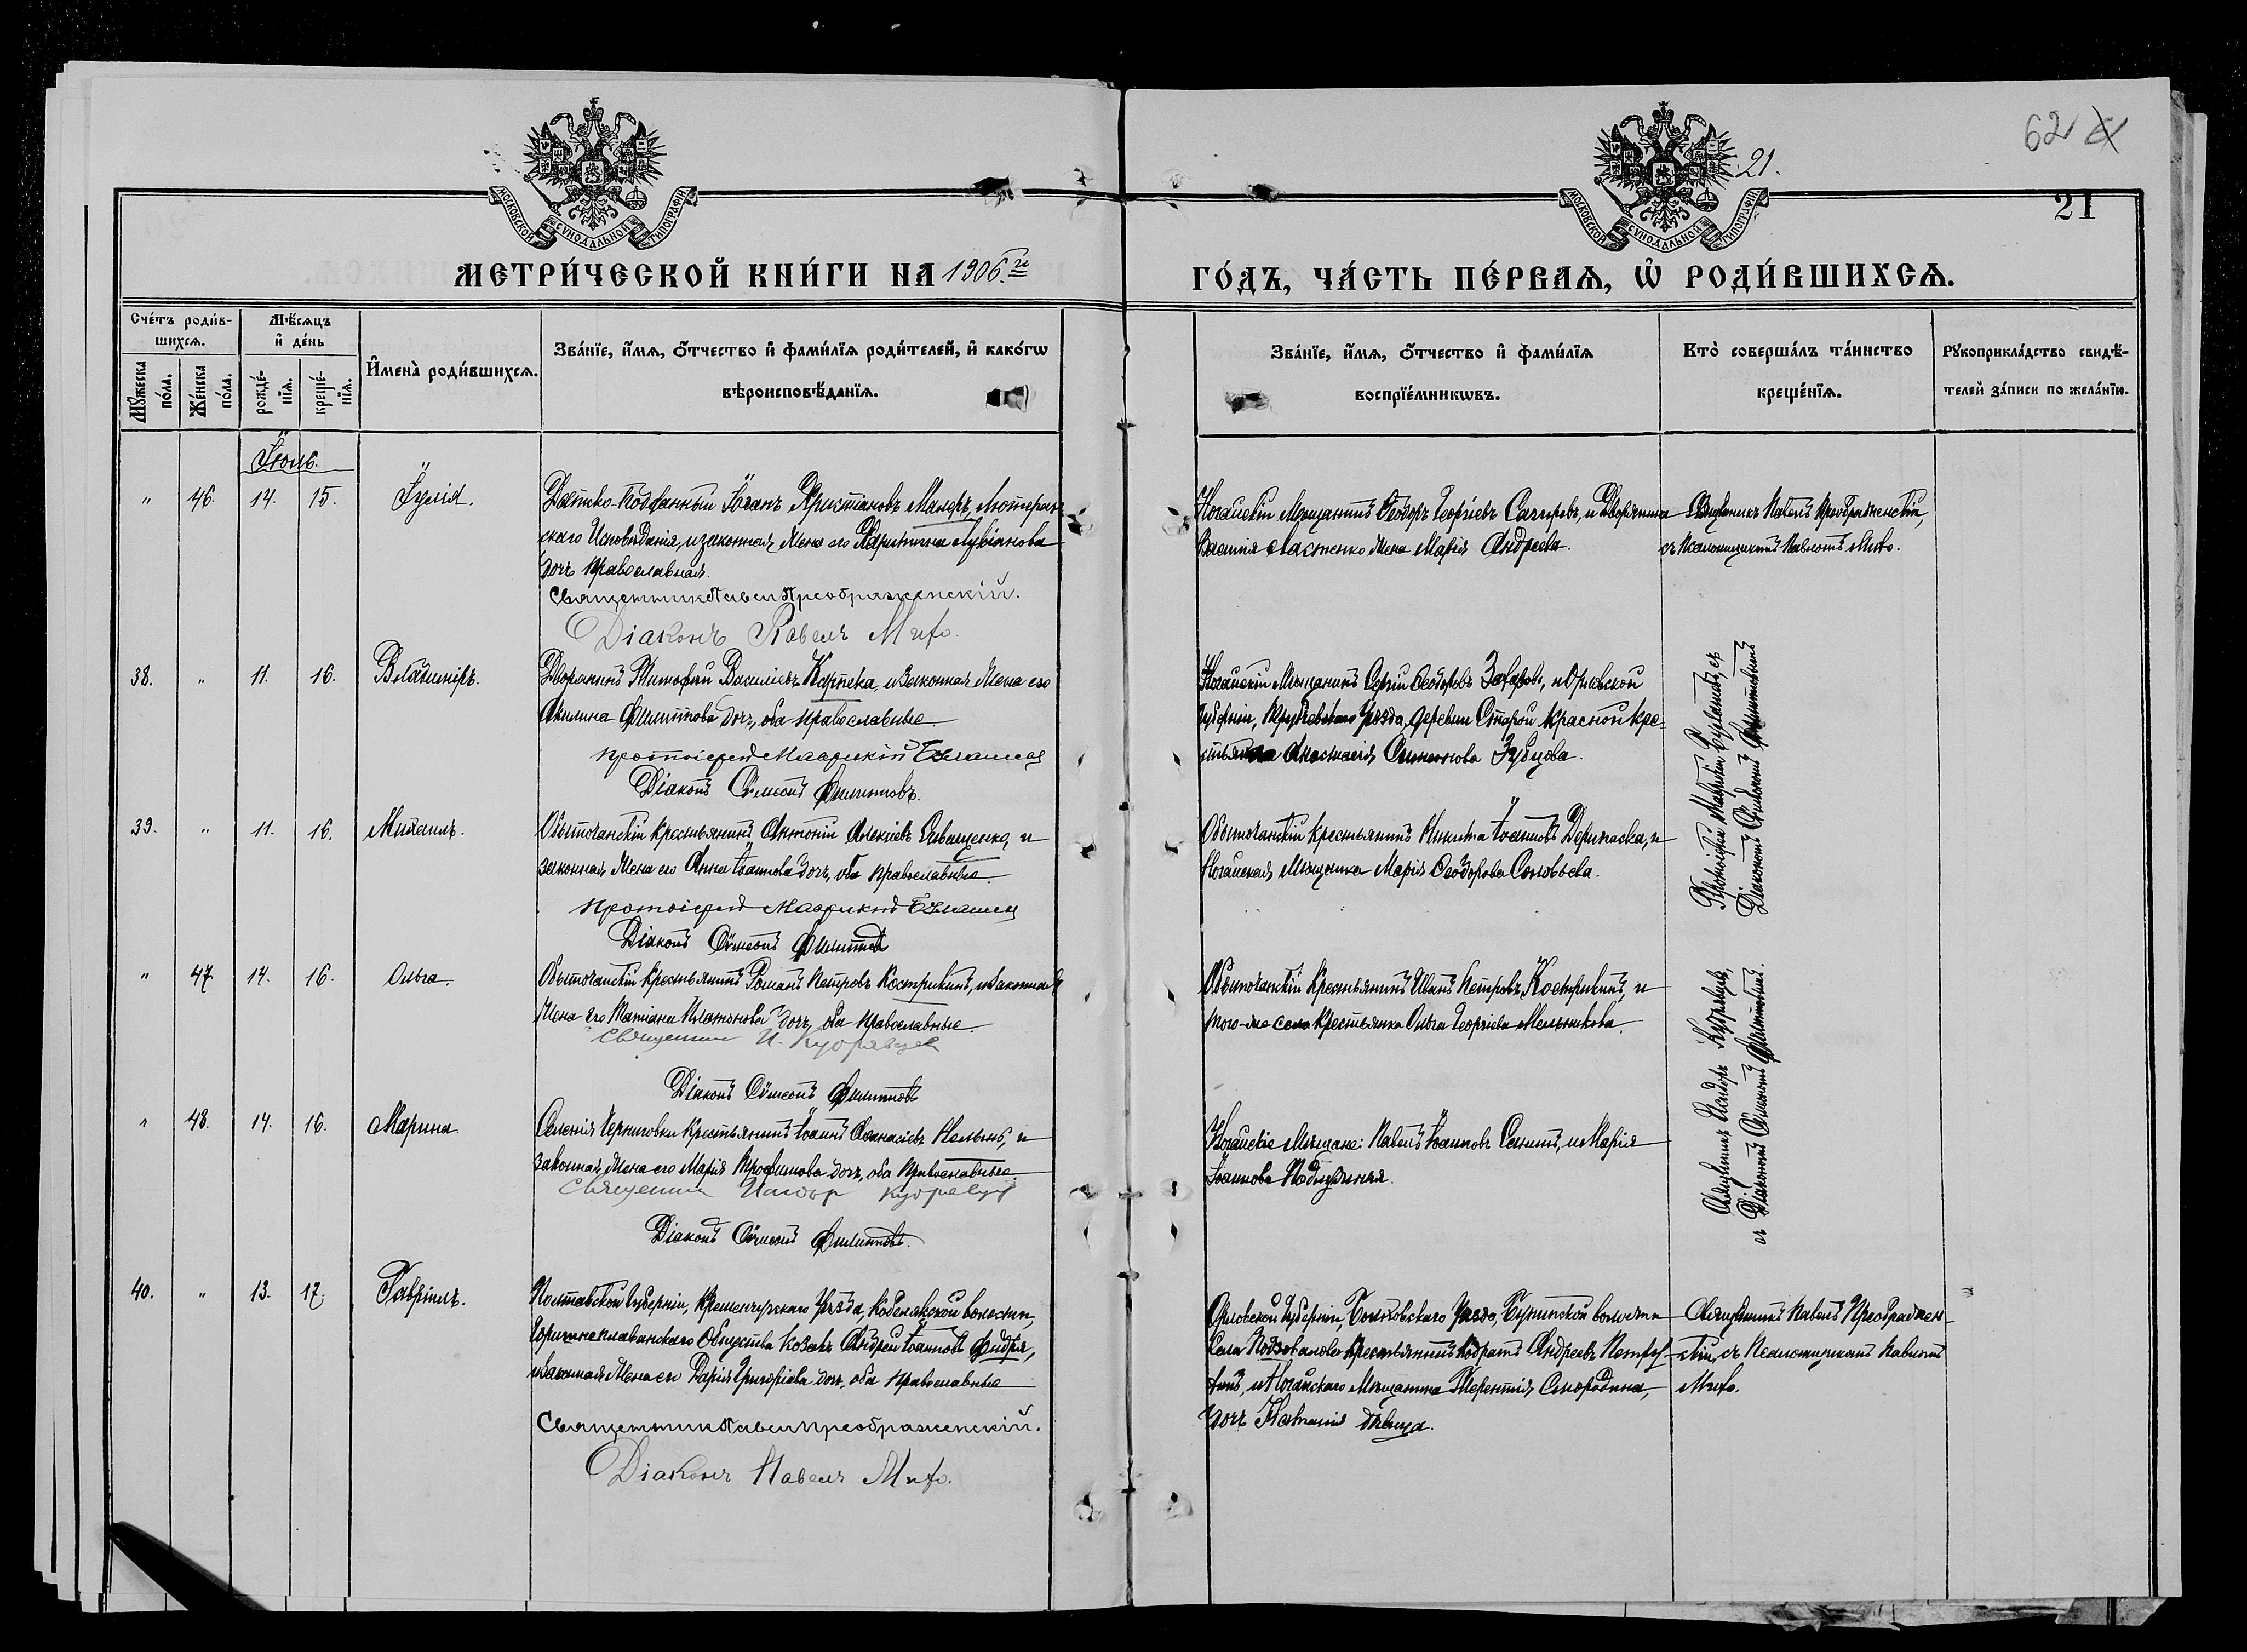 62
21.
21
МОСКОВСКОЙ СѴНОДАЛЬНОЙ ТИПОГРАФІИ
МОСКОВСКОЙ СѴНОДАЛЬНОЙ ТИПОГРАФІИ
МЕТРИ́ЧЕСКОЙ КНИ́ГИ НА 1906.й
ГО́ДЪ, ЧА́СТЬ ПЕ́РВАѦ, Ѽ РОДИ́ВШИХСѦ.
Сче́тъ роди́в-
шихсѧ.
Мꙋ́жеска по́ла.
Же́нска по́ла.
Мѣ́сѧцъ
и҆ де́нь
рожде́-нїѧ.
креще́-нїѧ.
И҆мена̀ роди́вшихсѧ.
Зва́нїе, и҆́мѧ, ѻ҆́тчество и҆ фами́лїѧ роди́телей, и҆ како́гѡ
вѣроисповѣ́данїѧ.
Зва́нїе, и҆́мѧ, ѻ҆́тчество и҆ фами́лїѧ
воспрїе́мникѡвъ.
Кто̀ соверша́лъ та́инство
креще́нїѧ.
Рꙋкоприкла́дство свидѣ́-
телей за́писи по жела́нїю.
Іюль.
" 46. 14. 15. Іулія.
Датско-Подданный Іоганъ Христіановъ Лютеран-
скаго Исповѣданія, и законная Жена его
дочь Православная.
Священник Павел Преображенскій.
Діаконъ Павелъ
Ногайскій Мѣщанинъ Ѳеодоръ Георгіевъ и Дворянина
Василія Ластенко Жена Марія Андреева.
Священникъ Павелъ Преображенскій,
съ Псаломщикомъ Павломъ
38. " 11. 16. Владиміръ.
Дворянинъ Тимофей Василіевъ Карпека, и Законная Жена его
Акилина Филиппова дочь, оба Православные.
протоіерей Маврикій
Діаконъ Сѵмеонъ Филипповъ.
Ногайскій Мѣщанинъ Сергій Ѳеодоровъ Захаровъ, и Орловской
Губерніи, Трубчевскаго Уѣзда, деревни Старой Красной Кре-
стьянка Анастасія Симеонова Зубцова.
39. " 11. 16. Михаилъ.
Обыточанскій Крестьянинъ Антоній Алексіевъ и
законная Жена его Анна Іоаннова дочь, оба Православные.
протоіерей Маврикій
Діаконъ Сѵмеонъ Филипповъ
Обыточанскій Крестьянинъ Никита Іоанновъ Дерипаска, и
Ногайская Мѣщанка Марія Ѳеодорова Соловьева.
Протоіерей Маврикій съ
Діакономъ Сѵмеономъ Филипповымъ
" 47 14. 16. Ольга.
Обыточанскій Крестьянинъ Романъ Петровъ Кострикинъ, и Законная
Жена его Татіана Платонова дочь, оба Православные.
Священник И. Кудрявцев
Діаконъ Сѵмеонъ Филипповъ
Обыточанскій Крестьянинъ Иванъ Петровъ Кострикинъ, и
того-же Села Крестьянка Ольга Георгіева Мельникова.
" 48. 14. 16. Марина.
Селенія Черниговки Крестьянинъ Іоаннъ Аѳанасіевъ и
законная Жена его Марія Трофимова дочь, оба Православные.
Священник Исидор Кудрявцев
Діаконъ Сѵмеонъ Филипповъ.
Ногайскіе Мѣщане: Павелъ Іоанновъ Сенинъ, и Марія
Іоаннова
Священникъ Исидоръ Кудрявцевъ,
съ Діакономъ Сѵмеономъ Филипповымъ.
40. " 13. 17. Гавріилъ.
Полтавской Губерніи, Кременчугскаго Уѣзда, Кобелякской волости,
Общества Козакъ Андрей Іоанновъ
и законная Жена его Дарія Григоріева дочь, оба Православные
Священник Павел Преображенскій.
Діаконъ Павелъ
Орловской Губерніи, Болховскаго Уѣзда, волости
Села Крестьянинъ Кодратъ Андреевъ
и Ногайскаго Мѣщанина Терентія Смородина,
дочь Наталія дѣвица.
Священникъ Павелъ Преображен-
скій, съ Псаломщикомъ Павломъ